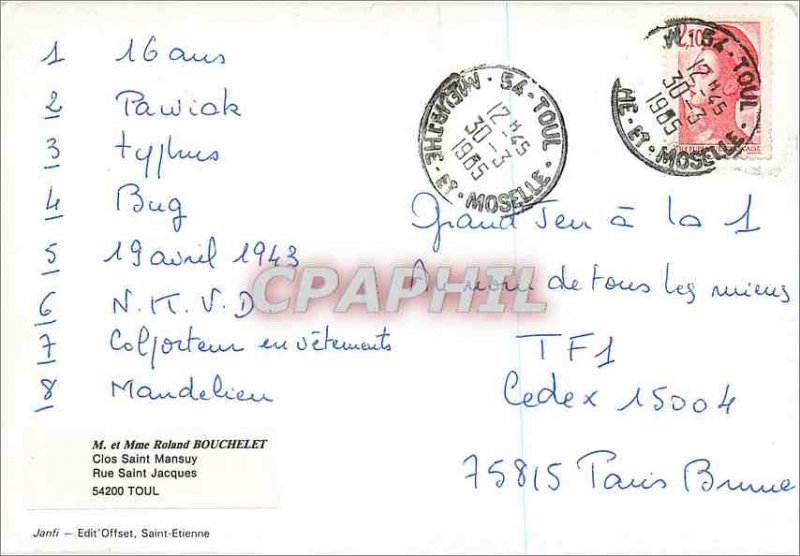 1 16 ans
2 Pawiak
3 typhus
4 Bug
5 19 avril 1943
6 N.K.V.D.
7 Colporteur en vêtements
8 Mandelieu
M. et Mme Roland BOUCHELET
Clos Saint Mansuy
Rue Saint Jacques
54200 TOUL
Janfi — Edit'Offset, Saint-Etienne
54 - TOUL
12 H 45
30 - 3
1985
MEURTHE - ET - MOSELLE
2,10
54 - TOUL
12 H 45
30 - 3
1985
HE - ET - MOSELLE
Grand Jeu à la 1
Au nom de tous les miens
TF1
Cedex 15004
75815 Paris Brune
CPAPHIL